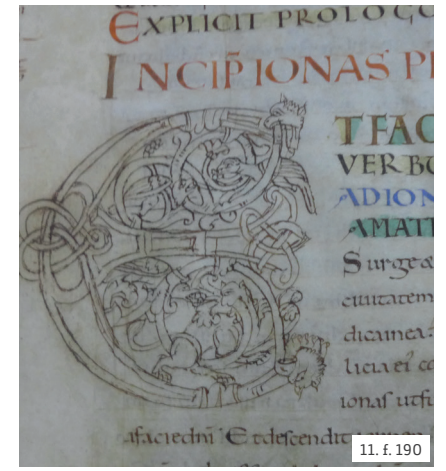 EXPLICIT PROLOGU
INCIP̄ IONAS P
E
T FAC
VERBU
ADION
AMATH
Surge &
ciuitatem
dicainea
licia ei
ionas utfu
afacie dn̄i Et descendit
11. f. 190